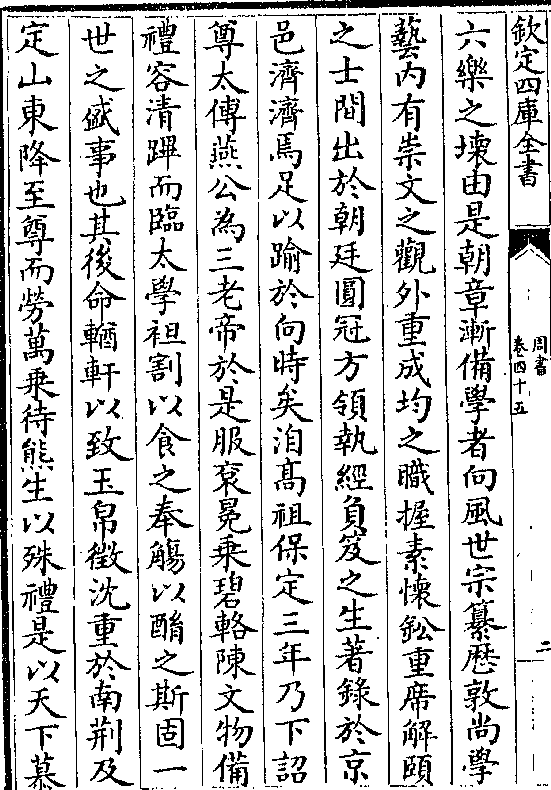 欽定四庫全書
周書
卷四十五
二
六樂之壞由是朝章漸備學者向風世宗纂歷敦尚學
藝内有崇文之觀外重成均之職握素懷鈆重席解頤
之士間出於朝廷圓冠方領執經負笈之生著錄於京
邑濟濟焉足以踰於向時矣洎髙祖保定三年乃下詔
尊太傅燕公為三老帝於是服衮冕乗碧輅陳文物備
禮容清蹕而臨太學袒割以食之奉觴以酳之斯固一
世之盛事也其後命輶軒以致玉帛徴沈重於南荆及
定山東降至尊而勞萬乗待熊生以殊禮是以天下慕